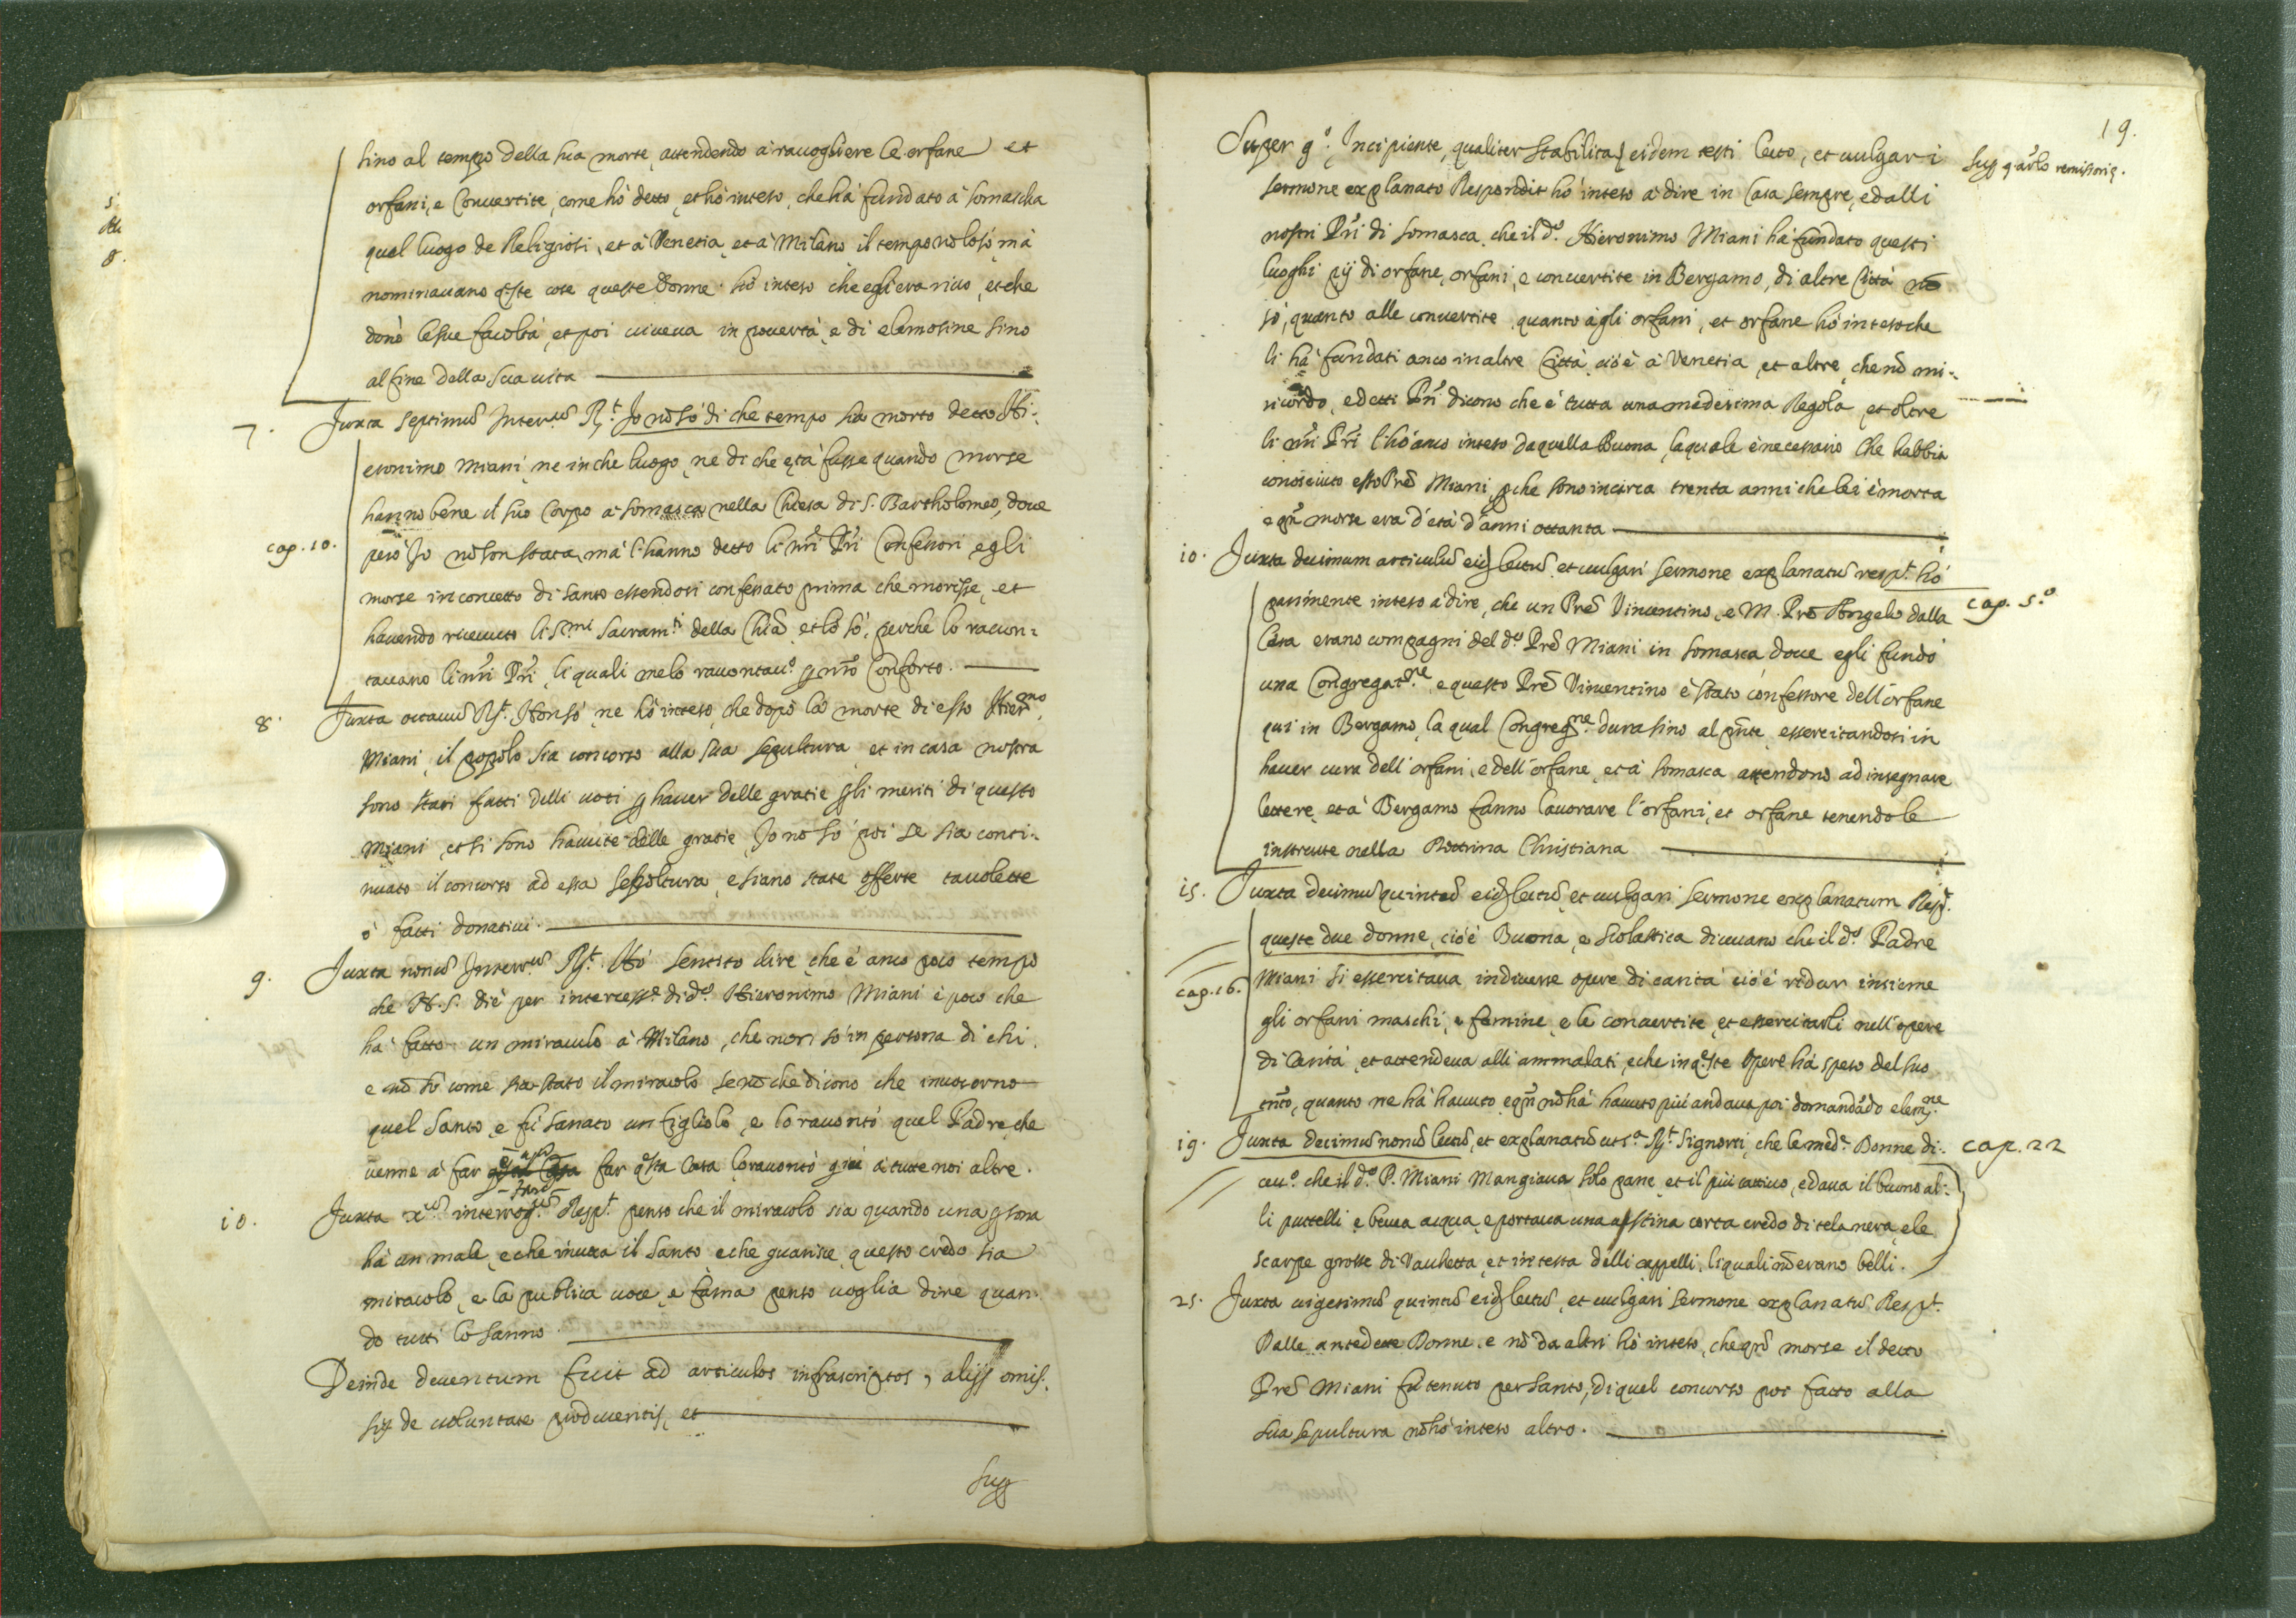 sino al tempo della sua morte, attendendo à racogliere le orfane et
orfani, e Convertite, come hò detto, et hò inteso, che hà fundato à Somascha
quel luogo de Religiosi, et à Venetia, et à Milano il tempo nō lo sò, mà
nominavano q̄ste cose queste Donne. hò inteso che egli era rico, et che
donò le sue facoltà, et poi viveva in povertà, e di elemosine sino
al fine della sua vita
7. Juxta septimū Interr.ᵘᵐ R.ᵗ Jo nō sò di che tempo sia morto detto Hi-
eronimo Miani, ne in che luogo, ne di che età fusse quando morse
hanno bene il suo Corpo à Somasca nella Chiesa di S. Bartholomeo, dove
cap. 10.
però Jo nō son stata, mà l'hanno detto li nr̄i Pr̄i Confessori, egli
morse in concetto di santo essendosi confessato prima che morisse, et
havendo ricevuto li S.ᵐⁱ Sacram.ᵗⁱ della Chiā, et lo sò, perche lo racon-
tavano li nr̄i Pr̄i, li quali me lo racontav.º p nr̄o Conforto.
8. Juxta octavū R.ᵗ Non sò, ne hò inteso, che dopò la morte di esso Hier.ᵐᵒ
Miani, il popolo sia concorso alla sua sepultura, et in casa nostra
sono stati fatti delli voti p haver delle gratie p li meriti di questo
Miani, et si sono havute delle gratie, Jo nō sò poi se sia conti-
nuato il concorso ad essa sepoltura, e siano state offerte tavolette
ò fatti donativi.
9. Juxta nonū Interr.ᵘᵐ R.ᵗ Hò sentito dire, che è anco poco tempo
che N. S. diè per intercess.ᵉ di d.º Hieronimo Miani è poco che
hà fatto un miraculo à Milano, che non sò in persona di chi,
e nō sò come sia stato il miracolo se nō che dicono che invocorno
quel Santo, e fù sanato un figliolo, e lo racontò quel Padre, che
venne à far far q̄sta Casa lo racontò giù à tutte noi altre.
10. Juxta x.ᵘᵐ interrog.ᵘᵐ Resp.ᵗ penso che il miracolo sia quando una psona
hà un male, e che invoca il Santo, e che guarisce, questo credo sia
miracolo, e la publica voce, e fama penso voglia dire quan-
do tutti lo sanno.
Deinde deventum fuit ad articulos infrascriptos, alijs omis-
sis de voluntate producentis, et
Sup
19.
Super 9.º Incipiente, qualiter stabilitas eidem testi lecto, et vulgari
sup 9 artlo remissoriẹ.
sermone explanato Respondit hò inteso à dire in Casa sempre, e dalli
nostri Pr̄i di Somasca, che il d.º Hieronimo Miani hà fundato questi
luoghi pij di orfane, orfani, e convertite in Bergamo, di altre Città nō
sò, quanto alle convertite, quanto à gli orfani, et orfane hò inteso che
li hà fundati anco in altre Città, cioè à Venetia, et altre, che nō mi
ricordo, e detti Pr̄i dicono che è tutta una medesima Regola, et oltre
li nr̄i Pr̄i l'hò anco inteso da quella Buona, la quale è necessario che habbia
conosciuto esso Prē Miani, pche sono incirca trenta anni che lei è morta
e qn̄ morse era d'età d'anni ottanta
10. Juxta decimum articulū eidē lectū, et vulgari sermone explanatū resp.ᵗ hò
cap. 5.º
parimente inteso à dire, che un Prē Vincentino, e M. Prē Angelo dalla
Casa erano compagni del d.º Prē Miani in Somasca, dove egli fundò
una Congregat.ⁿᵉ, e questo Prē Vincentino è stato confessore dell'orfane
qui in Bergamo, la qual Congreg.ⁿᵉ dura sino al pn̄te, essercitandosi in
haver cura dell'orfani, e dell'orfane, et à Somasca attendono ad insegnare
lettere, et à Bergamo fanno lavorare l'orfani, et orfane tenendole
instrutte nella Dottrina Christiana
15. Juxta decimū quintū eidē lectū, et vulgari sermone explanatum Resp.ᵗ
queste due donne, cioè Buona, e Scolastica dicevano che il d.º Padre
cap. 16.
Miani si essercitava in diverse opere di carità cioè ridur insieme
gli orfani maschi, e femine, e le convertite, et essercitarli nell'opere
di Carità, et attendeva alli ammalati, e che in q̄ste opere hà speso del suo
tn̄to, quanto ne hà havuto, e qn̄ nō hà havuto più andava poi domandādo elem.ⁿᵉ
19. Juxta decimū nonū lectū, et explanatū ut s.ᵃ R.ᵗ Signorsì, che le med.ᵉ Donne di-
cap. 22
cev.º che il d.º P. Miani mangiava solo pane, et il più cattivo, e dava il buono al-
li puttelli, e beveva acqua, e portava una vestina corta credo di tela nera, e le
scarpe grosse di Vacchetta, et in testa delli cappelli, li quali nō erano belli.
25. Juxta vigesimū quintū eidē lectū, et vulgari sermone explanatū Resp.ᵗ
Dalle antedette Donne, e nō da altri hò inteso, che qn̄ morse il detto
Prē Miani fù tenuto per Santo, di quel concorso poi fatto alla
sua sepultura nō hò inteso altro.